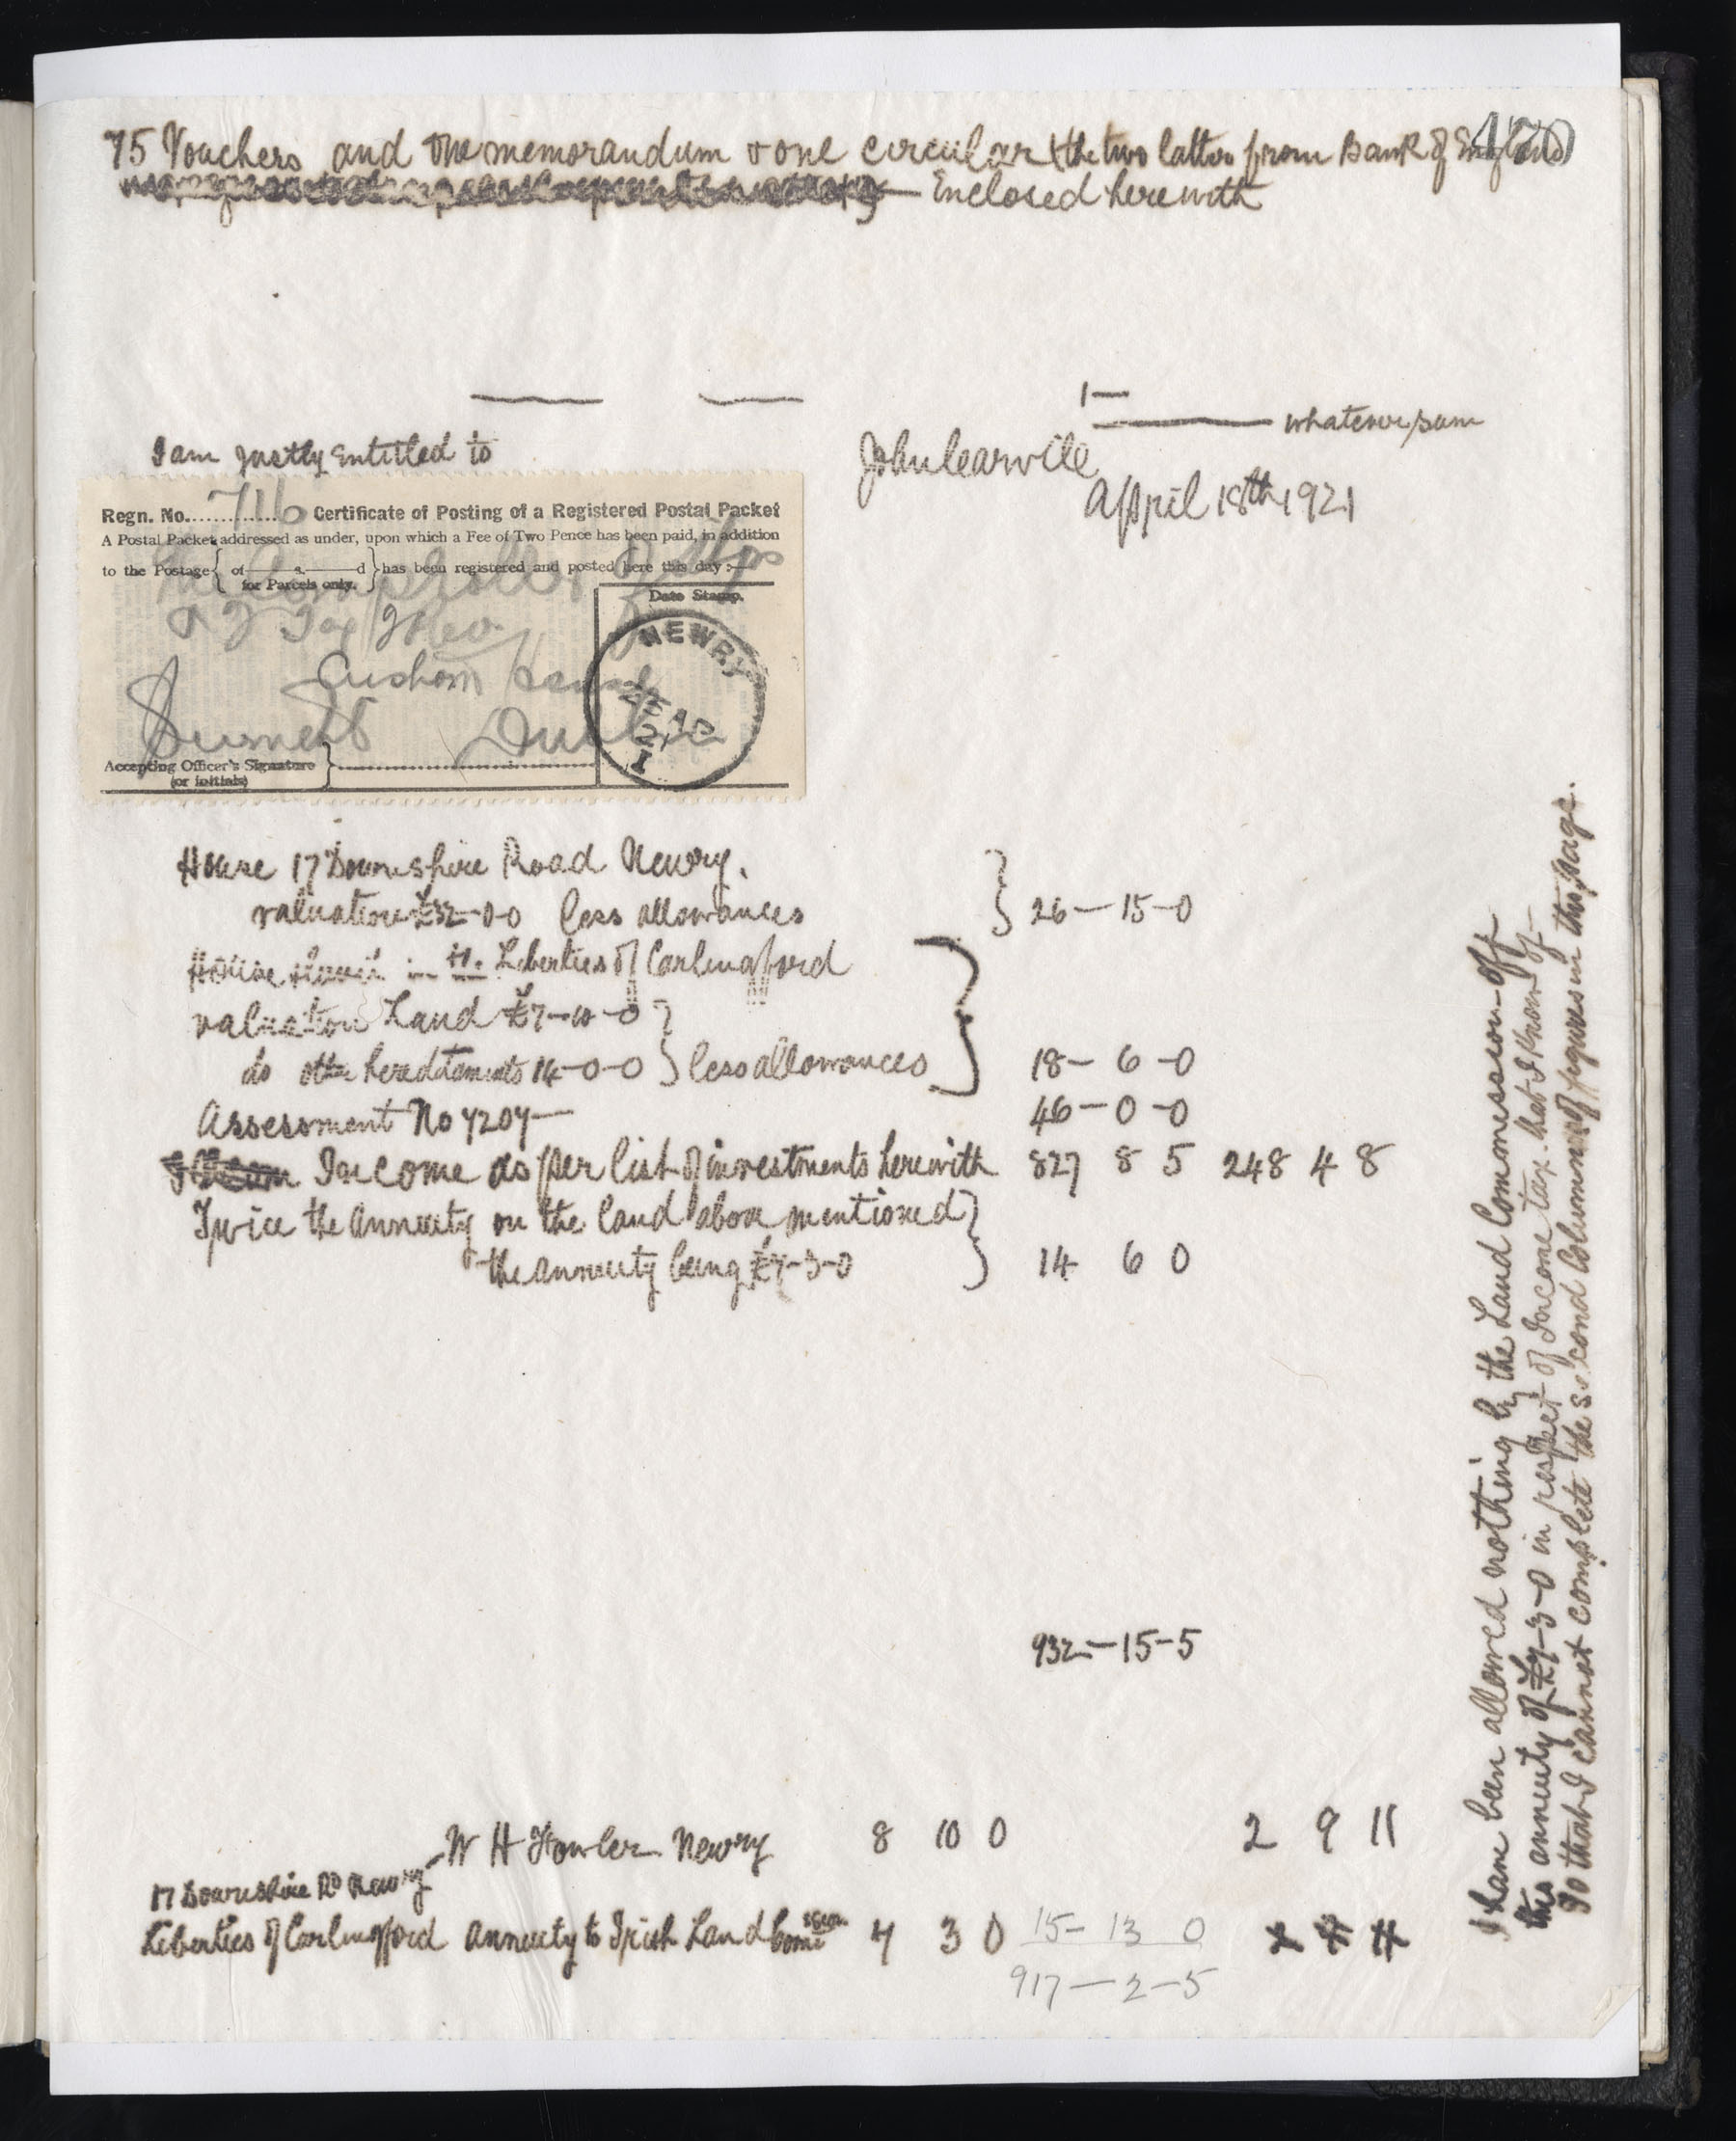 75 Vouchers and one memorandum & one circular (the two latter from Bank of England
Enclosed herewith
I am justly entitled to
whatever sum
April 18th 1921
Regn. No. 716 Certificate of Posting of a Registered Postal Packet
A Postal Packet addressed as under, upon which a Fee of Two Pence has been paid, in addition
to the Postage { of s. d } has been registered and posted here this day :—
for Parcels only.
Date Stamp.
Custom House
NEWRY
25 AP
21
Accepting Officer's Signature
(or initials)
House 17 Downshire Road Newry.
valuation £32-0-0 less allowances } 26—15-0
in the Liberties of Carlingford
valuation Land £7-10-0
do other hereditaments 14-0-0 } less allowances } 18- 6-0
Assessment No 7207— 46-0-0
Income as per list of investments herewith 827 8 5 248 4 8
Twice the annuity on the land above mentioned }
the annuity being £7-3-0 } 14 6 0
932—15-5
W H Fowler Newry 8 10 0 2 9 11
17 Downshire Rd Newry
Liberties of Carlingford annuity to Irish Land Comission 7 3 0 15- 13 0
917—2-5
I have been allowed nothing by the Land Commission off
this annuity of £7-3-0 in respect of Income tax that I know of-
So that I cannot complete the second Column of figures in this page.